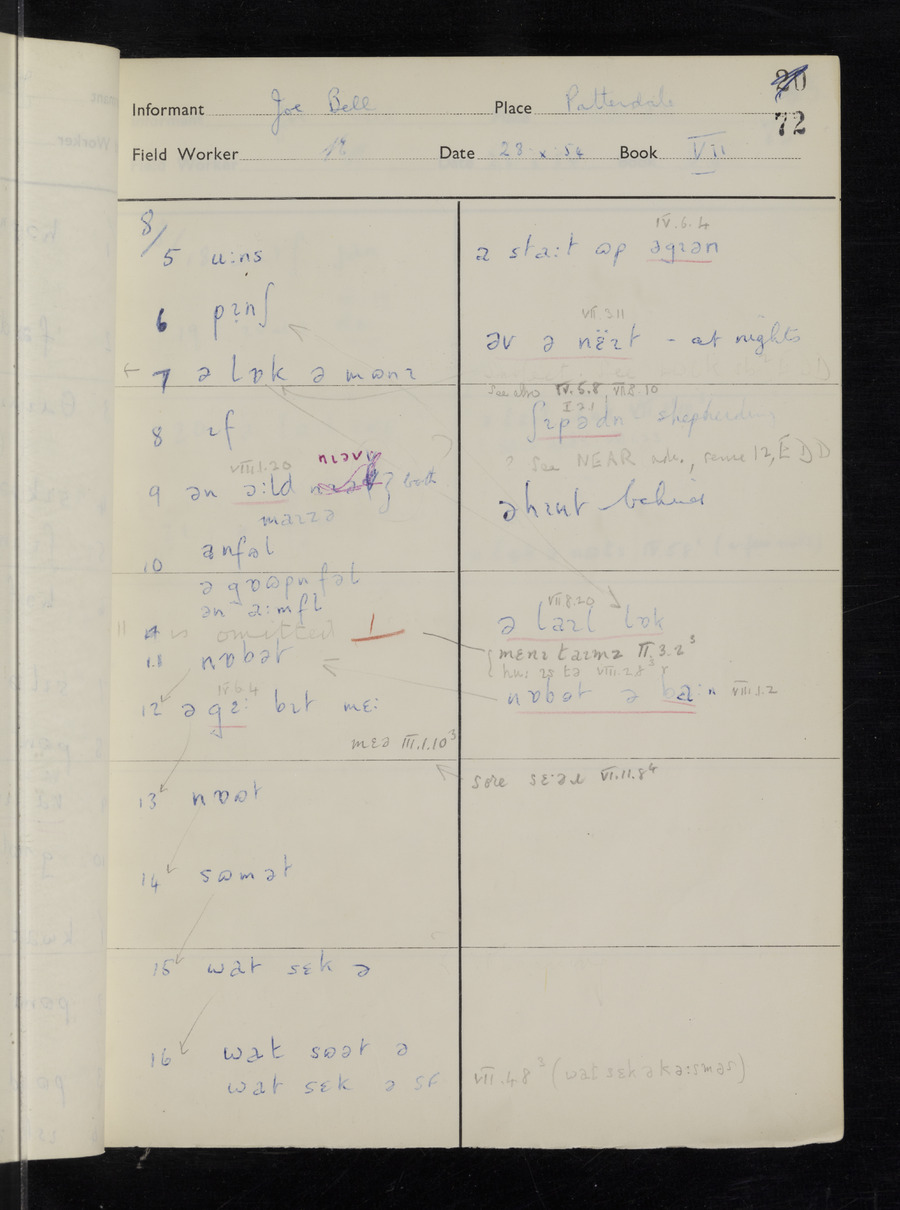 20
72
Informant Joe Bell Place Patterdale
Field Worker Date 28 x 54 Book VII
8/
5 u:ns
6 pɪnʃ
← 7 ə lɒk ə mɷnɪ
8 ɪf
VIII.1.20
9 ən ə:ld } both
maɪɪə
10 anfəl
ə gɒɷpnfəl
ən a:mfl
11 is omitted
11 nɒbət
IV.6.4
12 ə gɛ: bɪt mɛ:
mɛə III.1.10³
13 nɒɷt
14 sɷmət
15 wat sɛk ə
16 wat sɷət ə
wat sɛk ə
IV.6.4
a sta:t ɷp əgɪən
VII.3.11
əv ə nëɪt - at nights
See also IV.5.8, VII.8.10
ʃɪpədn shepherding
? See NEAR adv., sense 12, EDD
əhɪnt behind
VII.8.20
ə laɪl lɒk
mɛnɪ taɪmz II.3.2³
VIII.2.8³
nɒbət ə ba:n VIII.1.2
sore sɛ:əɹ VI.11.8⁴
VII.4.8³ (wat sɛk ə kə:smas)